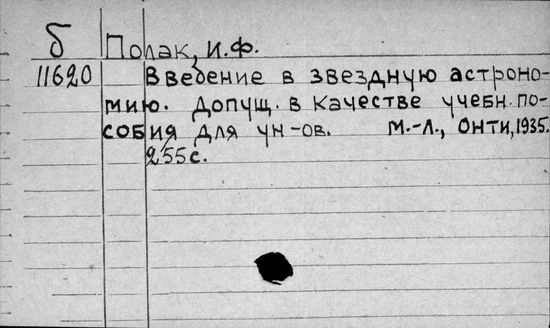 б Полак, И.Ф.
11620 Введение в звездную астроно-
мию. Допущ. в качестве учебн. по-
собия для ун-ов. М.-Л., Онти, 1935.
255 с.